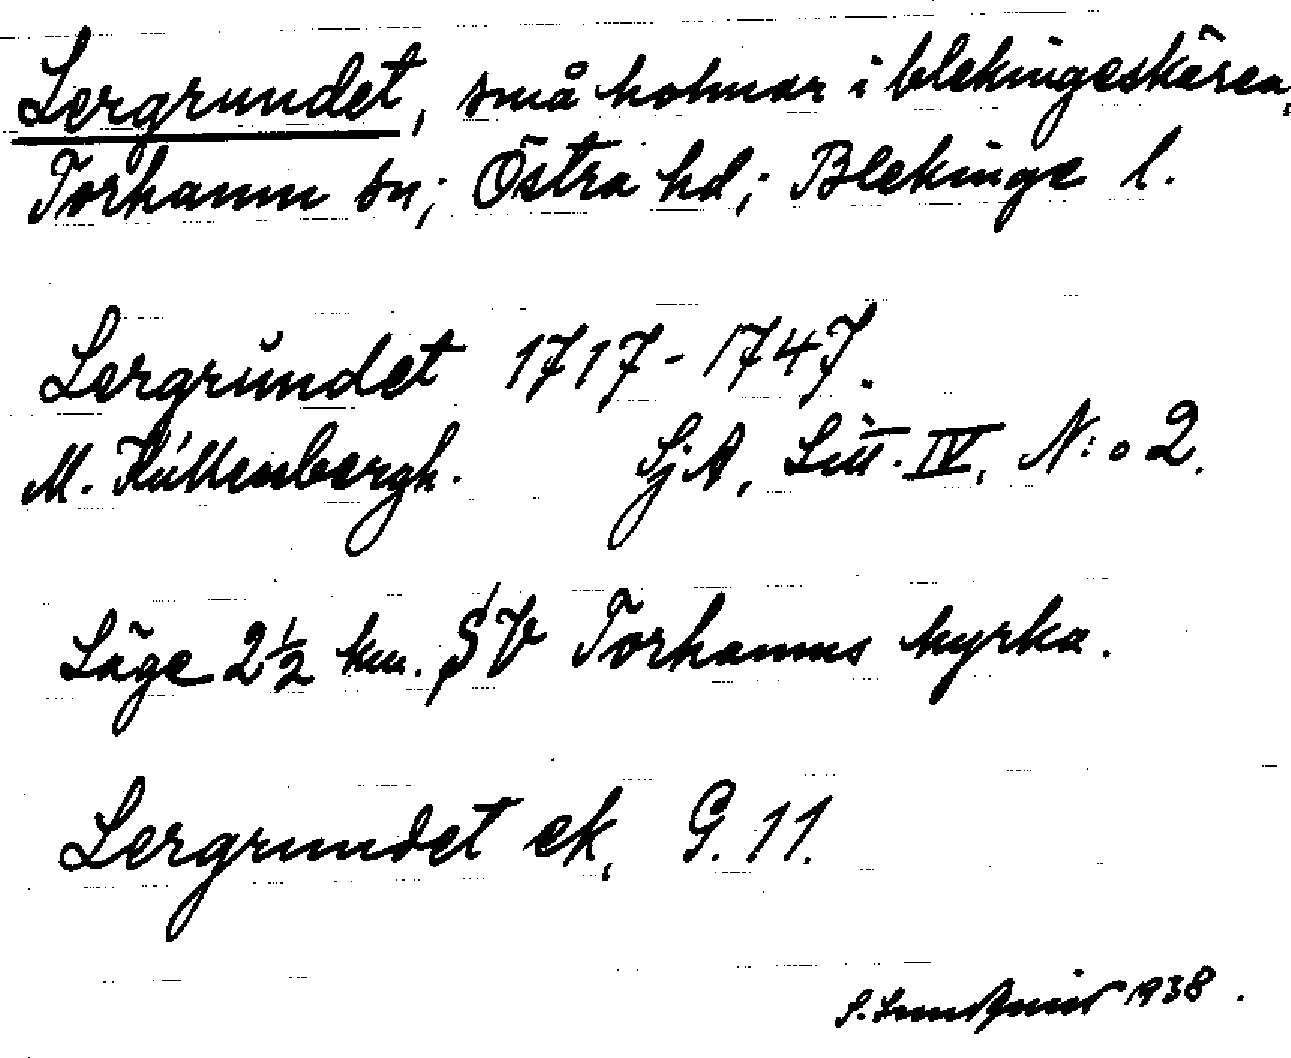 Lergrundet, små holmar i blekingeskären,
Torhamn sn; Östra hd; Blekinge l.
Lergrundet 1717-1747.
M. Küllenbergh. SjA, Litt. IV, N:o 2.
Läge 2½ km. SV Torhamns kyrka.
Lergrundet ek. G. 11.
1938.